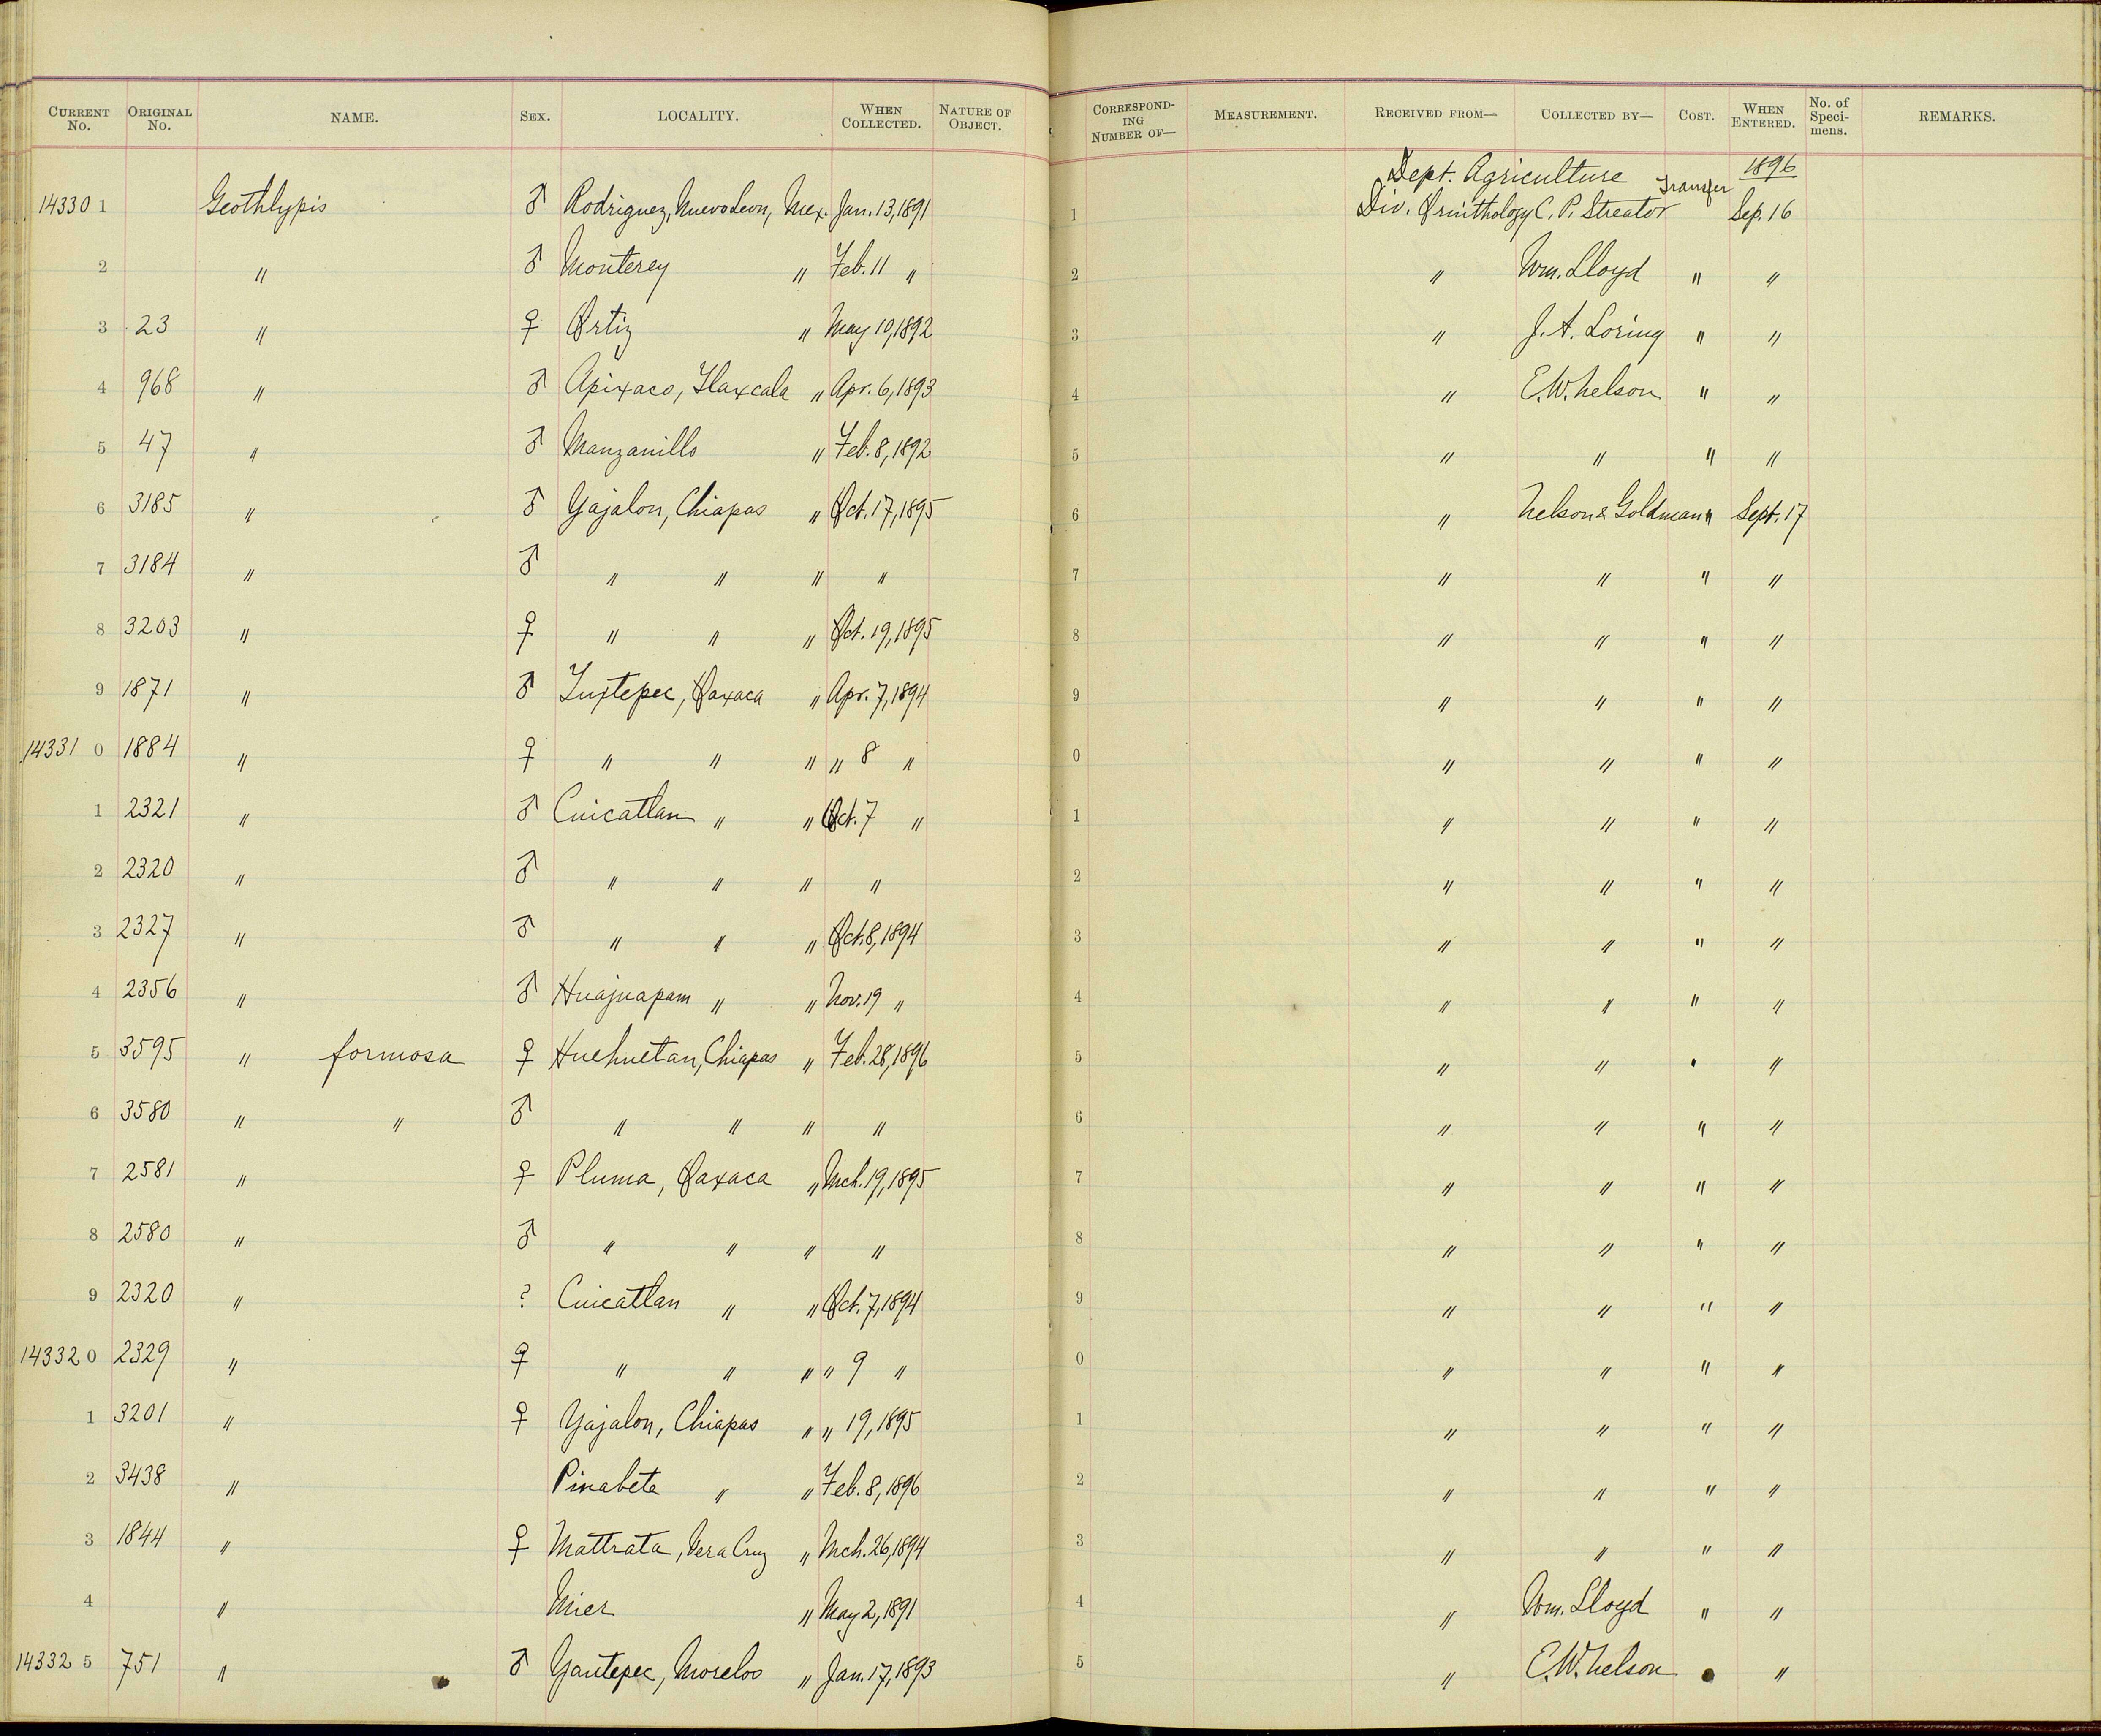 CURRENT No. ORIGINAL No. NAME. SEX. LOCALITY. WHEN COLLECTED. NATURE OF OBJECT. CORRESPONDING NUMBER OF— MEASUREMENT. RECEIVED FROM— COLLECTED BY— COST. WHEN ENTERED. No. of Specimens. REMARKS.
Dept. Agriculture Transfer 1896
14330 1 Geothlypis ♂ Rodriguez, Nuevo Leon, Mex. Jan. 13, 1891 1 Div. Ornithology C. P. Streator Sep. 16
2 " ♂ Monterey " Feb. 11 " 2 " Wm. Lloyd " "
3 23 " ♀ Ortiz " May 10, 1892 3 " J. A. Loring " "
4 968 " ♂ Apixaco, Tlaxcala " Apr. 6, 1893 4 " E. W. Nelson " "
5 47 " ♂ Manzanillo " Feb. 8, 1892 5 " " " "
6 3185 " ♂ Yajalon, Chiapas " Oct. 17, 1895 6 " Nelson & Goldman " Sept. 17
7 3184 " ♂ " " " " 7 " " " "
8 3203 " ♀ " " " Oct. 19, 1895 8 " " " "
9 1871 " ♂ Tuxtepec, Oaxaca " Apr. 7, 1894 9 " " " "
14331 0 1884 " ♀ " " " " 8 " 0 " " " "
1 2321 " ♂ Cuicatlan " " Oct. 7 " 1 " " " "
2 2320 " ♂ " " " " 2 " " " "
3 2327 " ♂ " " " Oct. 8, 1894 3 " " " "
4 2356 " ♂ Huajuapam " " Nov. 19 " 4 " " " "
5 3595 " formosa ♀ Huehuetan, Chiapas " Feb. 28, 1896 5 " " " "
6 3580 " " ♂ " " " " 6 " " " "
7 2581 " ♀ Pluma, Oaxaca " Mch. 19, 1895 7 " " " "
8 2580 " ♂ " " " " 8 " " " "
9 2320 " ? Cuicatlan " " Oct. 7, 1894 9 " " " "
14332 0 2329 " ♀ " " " " 9 " 0 " " " "
1 3201 " ♀ Yajalon, Chiapas " " 19, 1895 1 " " " "
2 3438 " Pinabete " " Feb. 8, 1896 2 " " " "
3 1844 " ♀ Mattrata, Vera Cruz " Mch. 26, 1894 3 " " " "
4 " Mier " May 2, 1891 4 " Wm. Lloyd " "
14332 5 751 " ♂ Yautepec, Morelos " Jan. 17, 1893 5 " E. W. Nelson "